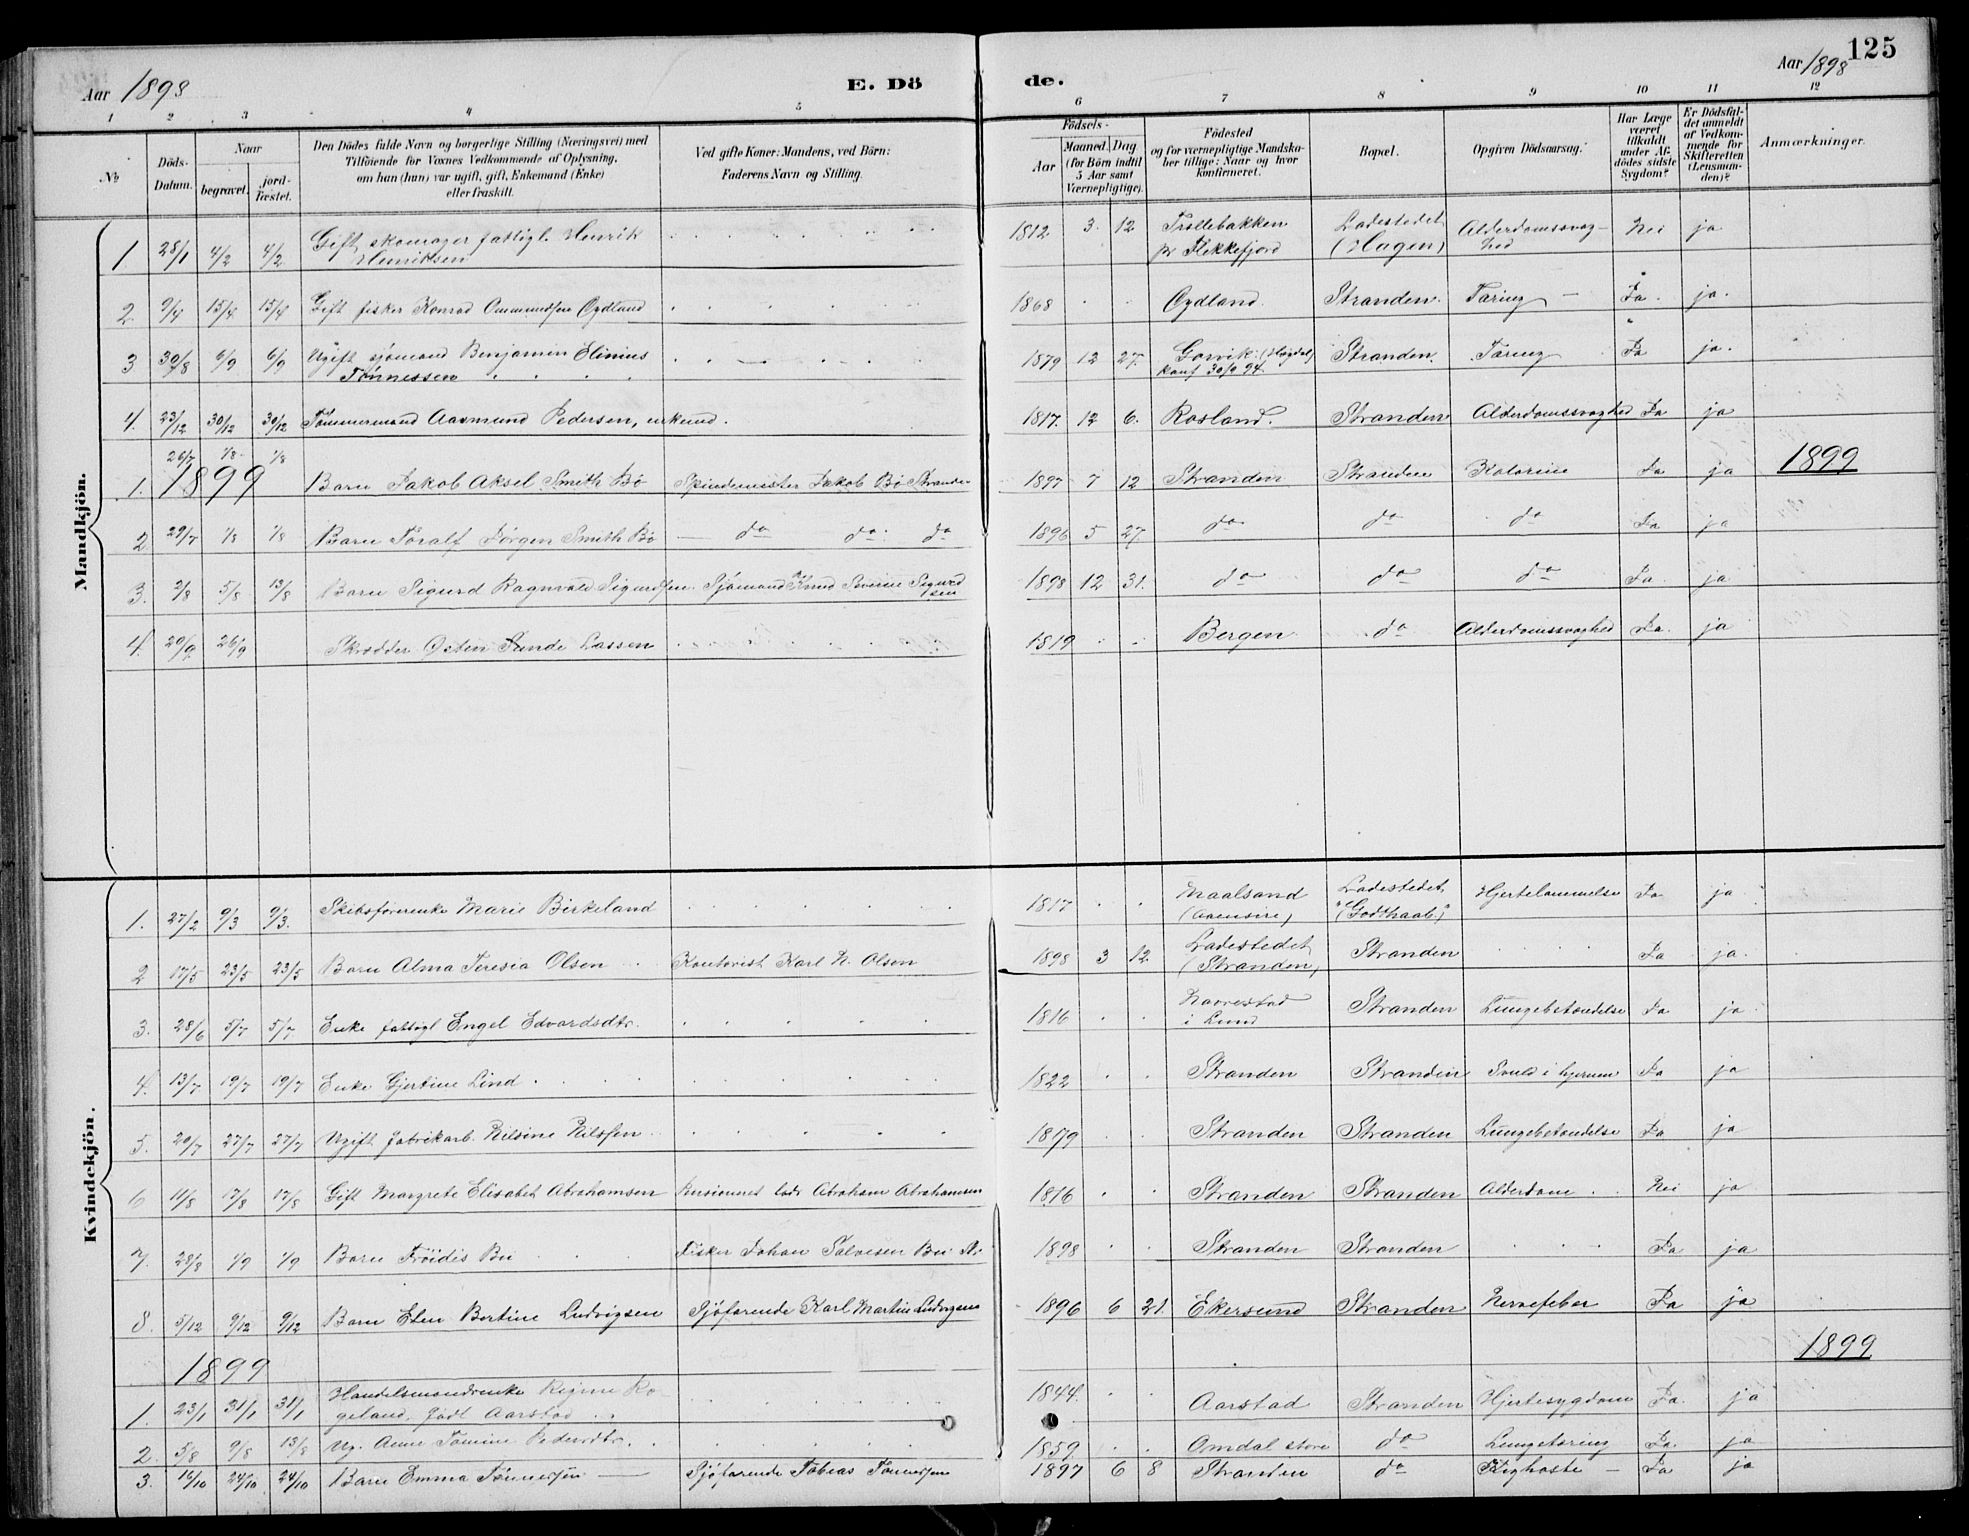 125
Aar 1898
E. Dö de.
Aar 1898
1 2 3 4 5 6 7 8 9 10 11 12
No
Döds-Datum.
Naar
begravet.
jord-fæstet.
Den Dödes fulde Navn og borgerlige Stilling (Næringsvei) med
Tilföiende for Voxnes Vedkommende af Oplysning,
om han (hun) var ugift, gift, Enkemand (Enke)
eller fraskilt.
Ved gifte Koner: Mandens, ved Börn:
Faderens Navn og Stilling.
Födsels-
Aar
Maaned. Dag
(for Börn indtil
5 Aar samt
Værnepligtige).
Födested
og for værnepligtige Mandska-
ber tillige: Naar og hvor
konfirmeret.
Bopæl.
Opgiven Dödsaarsag.
Har Læge
været
tilkaldt
under Af-
dödes sidste
Sygdom?
Er Dödsfal-
det anmeldt
af Vedkom-
mende for
Skifteretten
(Lensman-
den)?
Anmærkninger.
Mandkjön.
1 28/1 4/2 4/2 Gift skomager fattigl. Henrik Henriksen 1812 3 12 Trollebakken pr Flekkefjord Ladestedet (Hagen) Alderdomssvaghed Nei ja
2. 9/4 15/4 15/4 Gift fisker Konrad Ommundsen Oydland 1868 Oydland. Stranden. Tæring Ja. ja.
3 30/8 6/9 6/9 Ugift sjømand Benjamin Elinius Tønnessen 1879 12 27. Gosvik (Høgdal) konf 30/9 94. Stranden. Tæring Ja ja.
4. 23/12 30/12 30/12 Tømmermand Aasmund Pedersen, enkem. 1817. 12 6. Rosland. Stranden Alderdomssvaghed Ja ja
1899
1. 26/7 1/8 1/8 Barn Jakob Aksel Smith Bø Spindemester Jakob Bø Stranden 1897 7 12 Stranden Stranden Kolerine Ja ja
1899
2 29/7 1/8 1/8 Barn Toralf Jørgen Smith Bø do do do 1896 5 27. do do do Ja ja
3. 2/8 5/8 13/8 Barn Sigurd Ragnvald Sigurdsen Sjømand Knud Severin Sigurdsen 1898 12 31. do do do Ja ja
4. 20/9 26/9 Skrædder Østen Sunde Lassen 1819 Bergen do Alderdomssvaghed Ja. ja
Kvindekjön.
1. 27/2 9/3 9/3. Skibsførerenke Marie Birkeland 1817 Maalsand (Aaensire) Ladestedet "(Godthaab)" Hjertelammelse Ja ja
2 17/5 23/5 23/5 Barn Alma Teresia Olsen Kontorist Karl N. Olsen 1898 3 12. Ladestedet (Stranden) Stranden Ja ja.
3. 28/6 5/7 5/7 Enke fattigl Engel Edvardsdtr. 1816 Navrestad i Lund Stranden Lungebetændelse Ja ja
4. 13/7 19/7 19/7 Enke Gjertine Lind 1822 Stranden Stranden Svuld i hjernen Ja ja
5. 20/7 27/7 27/7 Ugift fabrikarb. Nilsine Nilssen 1879 Stranden Stranden Lungebetændelse Ja ja
6 11/8 17/8 17/8 Gift Margrete Elisabet Abrahamsen Pensioneret lods Abraham Abrahamsen 1816 Stranden Stranden Alderdom Nei ja
7. 28/8 1/9 1/9 Barn Frøidis Bu Fisker Johan Salvesen Bu St. 1898 Stranden Stranden Ja ja
8. 5/12 9/12 9/12 Barn Elen Bertine Ludvigsen Sjøfarende Karl Martin Ludvigsen 1896 6 21. Ekersund Stranden Nervefeber Ja ja
1899
1899
1. 23/1 31/1 31/1 Handelsmandsenke Regine Rogeland, født Aarstad 1844. Aarstad Stranden Hjertesygdom Ja. ja
2. 5/8 9/8 13/8 Ug. Anne Tomine Pedersdtr. 1859 Omdal store do Lungetæring Ja. ja
3. 16/10 24/10 24/10 Barn Emma Tønnessen Sjøfarende Tobias Tønnessen 1897 6 8 Stranden do Kighoste Ja ja